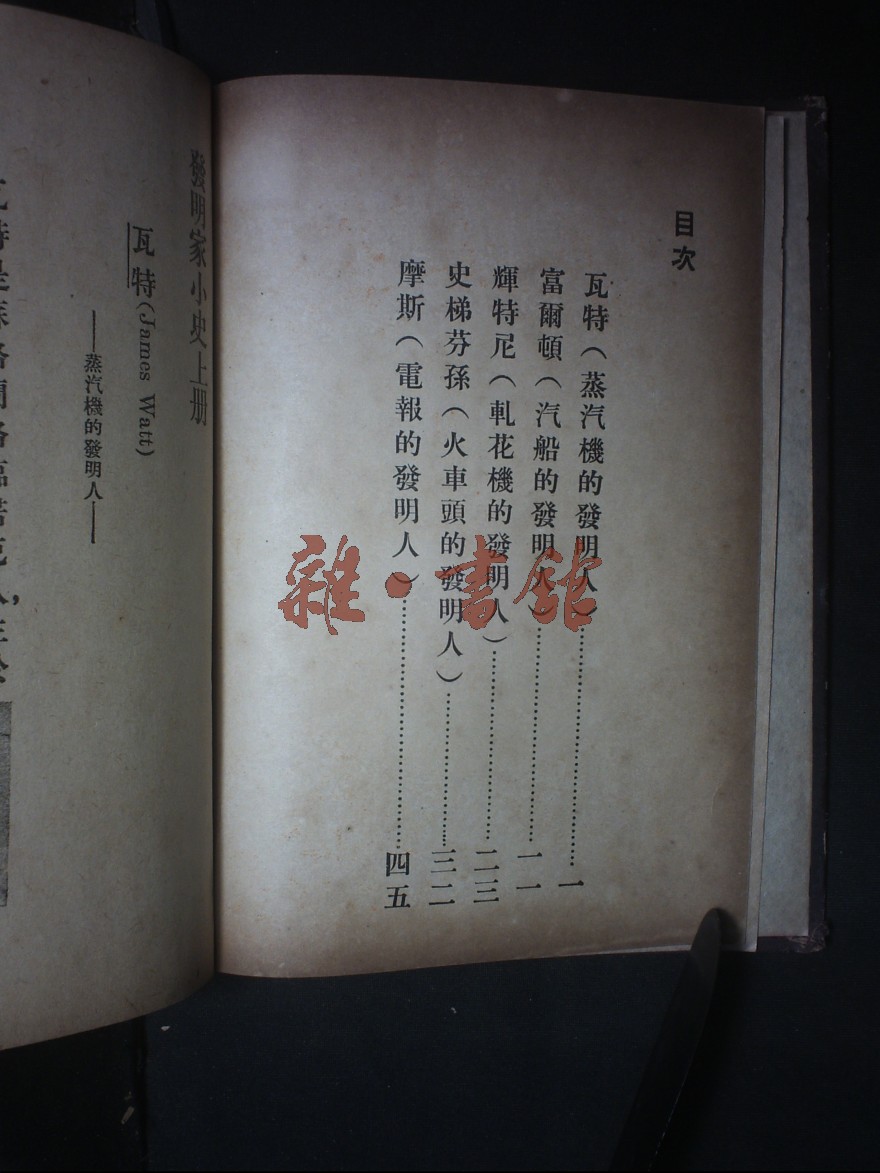 目次
瓦特（蒸汽機的發明人）……一
富爾頓（汽船的發明人）……一一
輝特尼（軋花機的發明人）……二三
史梯芬孫（火車頭的發明人）……三二
摩斯（電報的發明人）……四五
發明家小史上册
瓦特(James Watt)
——蒸汽機的發明人——
雜·書館